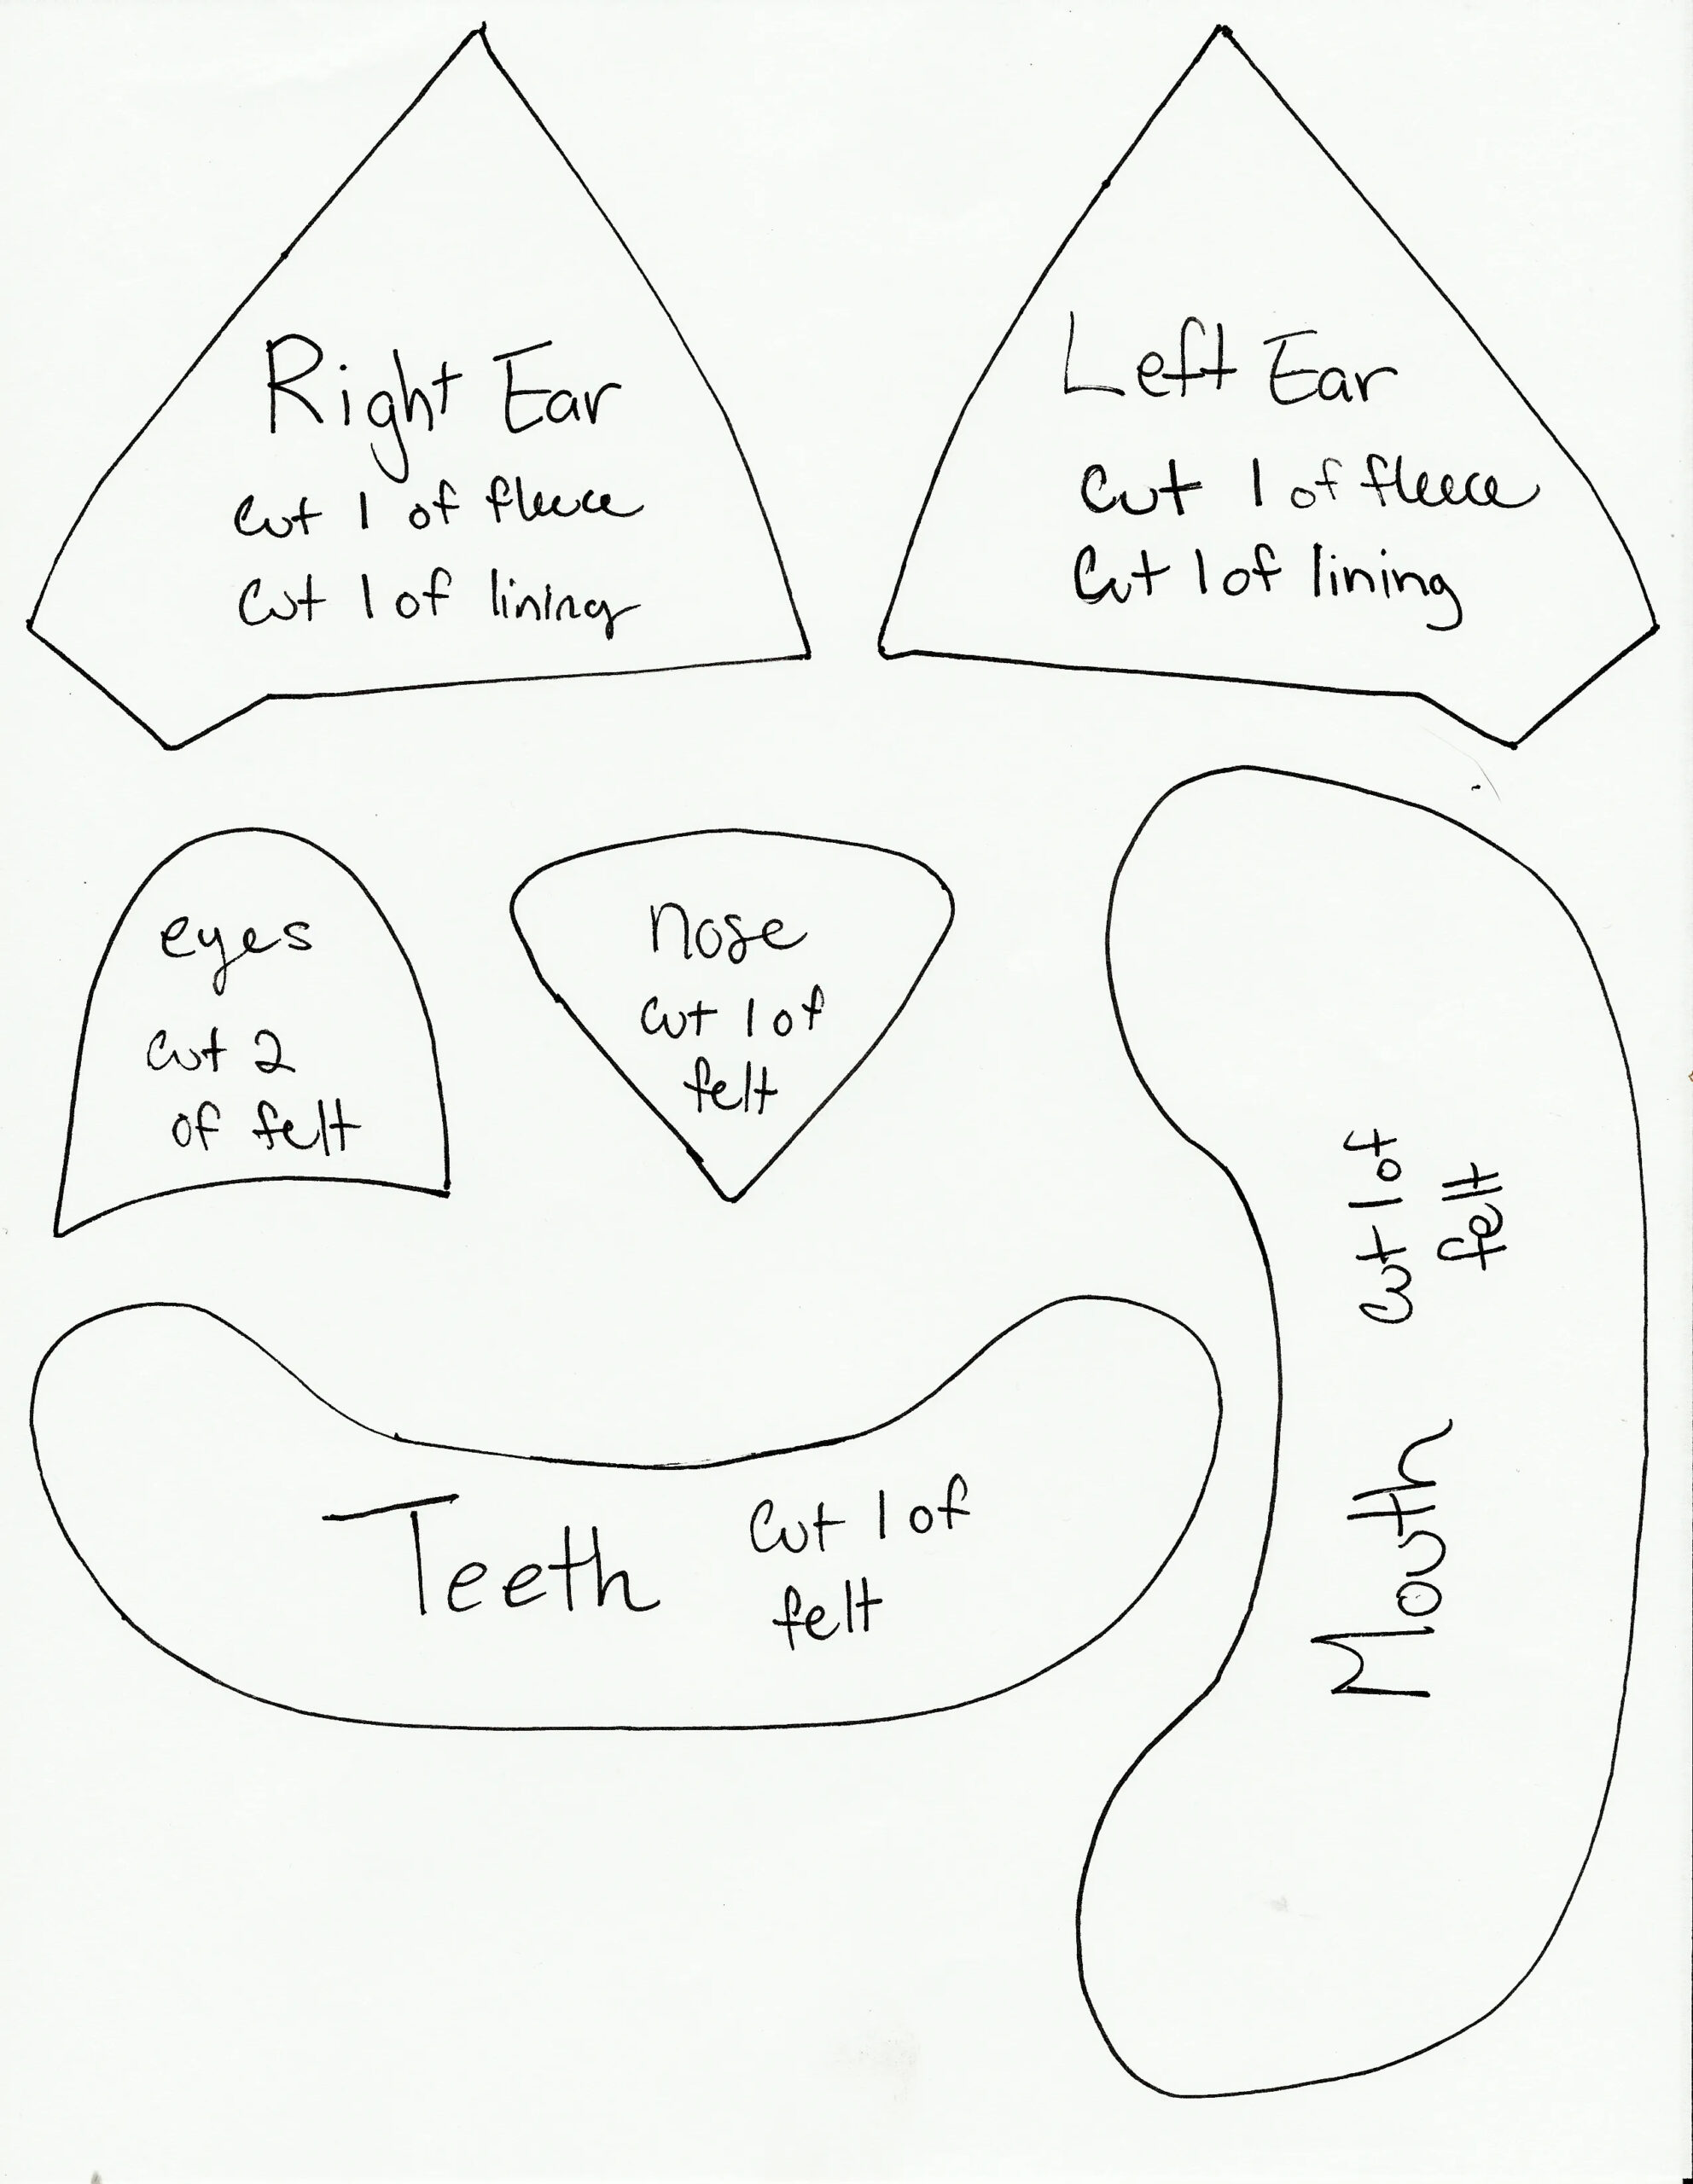 Right Ear
cut 1 of fleece
cut 1 of lining
Left Ear
cut 1 of fleece
cut 1 of lining
eyes
cut 2
of felt
nose
cut 1 of
felt
Teeth
cut 1 of
felt
Mouth
cut 1 of
felt